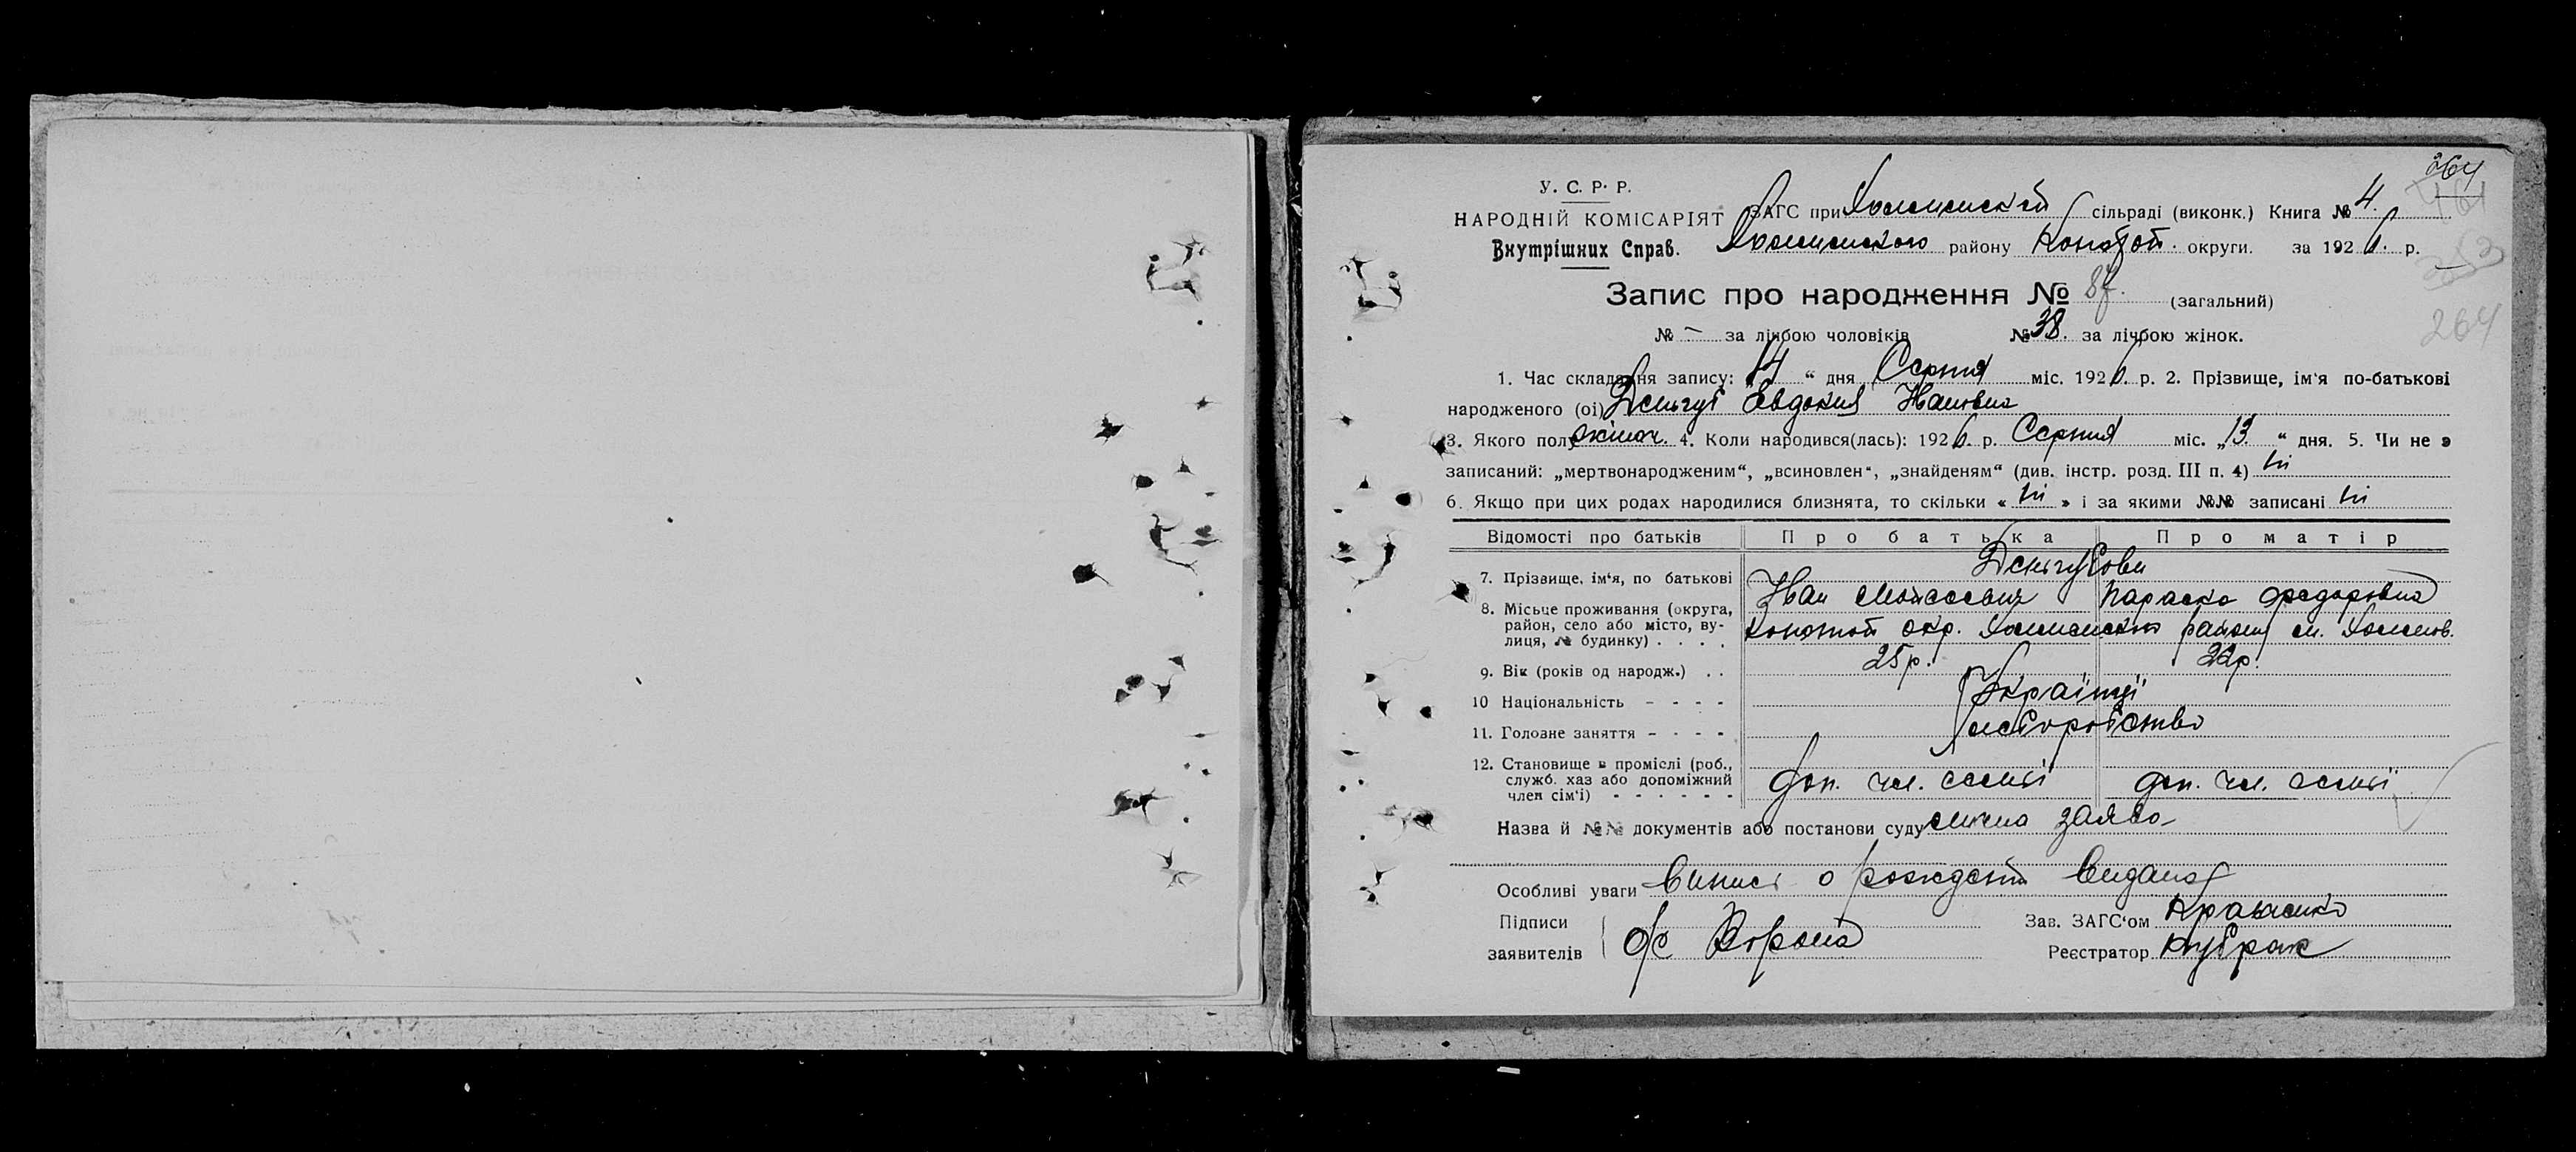 264
161
У. С. Р. Р.
НАРОДНІЙ КОМІСАРІЯТ
Внутрішних Справ.
ЗАГС при сільраді (виконк.) Книга № 4.
району Конотоп. округи. за 1926. р.
253
Запис про народження № 87. (загальний)
№ – за лічбою чоловіків № 38. за лічбою жінок.
264
1. Час складання запису: „14“ дня Серпня міс. 1926. р. 2. Прізвище, ім'я по-батькові
народженого (ої) Евдокия Ивановна
3. Якого полу жіноч. 4. Коли народився(лась): 1926. р. Серпня міс. „13“ дня. 5. Чи не э
записаний: „мертвонародженим“, „всиновлен“, „знайденям“ (див. інстр. розд. III п. 4) ні
6. Якщо при цих родах народилися близнята, то скільки « ні » і за якими №№ записані ні
Відомості про батьків Про батька Про матір
7. Прізвище, ім'я, по батькові
Иван Мойсеевич Параска Федоровна
8. Місьце проживання (округа, район, село або місто, вулиця, № будинку) . . . . Конотоп окр. район м.
9. Вік (років од народж.) . . 25 р. 22 р.
10 Національність - - - - Українці
11. Головне заняття - - - - хліборобство
12. Становище в проміслі (роб., служб. хаз або допоміжний член сім'ї) - - - - - - доп. чл. семьї доп. чл. семьї
Назва й №№ документів або постанови суду заява
Особливі уваги Випись о рождени видана
Підписи
заявителів о/с Ворона
Зав. ЗАГС'ом Кравченко
Реєстратор Кубрак